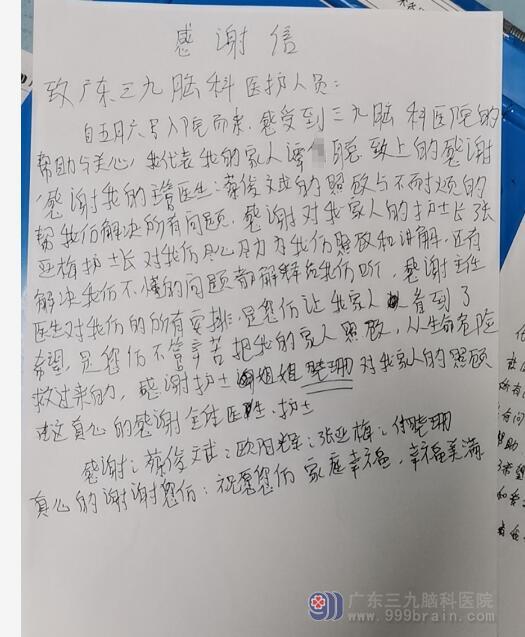 感谢信
致广东三九脑科医护人员：
自五月六号入院而来，感受到三九脑科医院的
帮助与关心，我代表我的家人谭 聪致上的感谢
，感谢我的主管医生：蔡俊斌的照顾与不耐烦的
帮我们解决所有问题，感谢对我家人的护士长张
亚梅护士长对我们尽心尽力为我们照顾和讲解，还有
解决我们不懂的问题都解释给我们听，感谢主任
医生对我们的所有安排，是您们让我家人看到了
希望，是您们不管辛苦把我的家人照顾，从生命危险
救过来的，感谢护士 姐姐 晓珊对我家人的照顾
这真心的感谢全体医生、护士
感谢：蔡俊斌：欧阳辉：张亚梅：付晓珊
真心的谢谢您们：祝愿您们家庭幸福，幸福美满
广东三九脑科医院
www.999brain.com